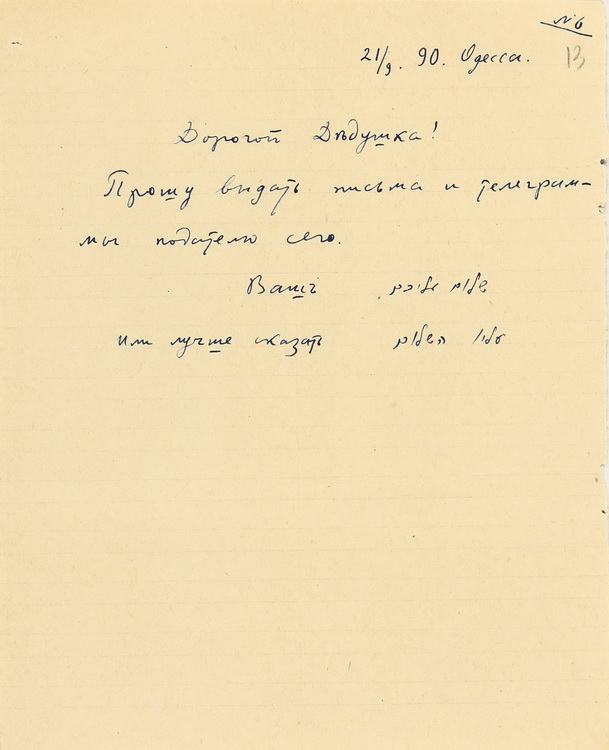 № 6
21/9. 90. Одесса.
13
Дорогой Дѣдушка!
Прошу выдать письма и телеграм-
мы подателю сего.
Вашъ שלום עליכם
или лучше сказать עליו השלום